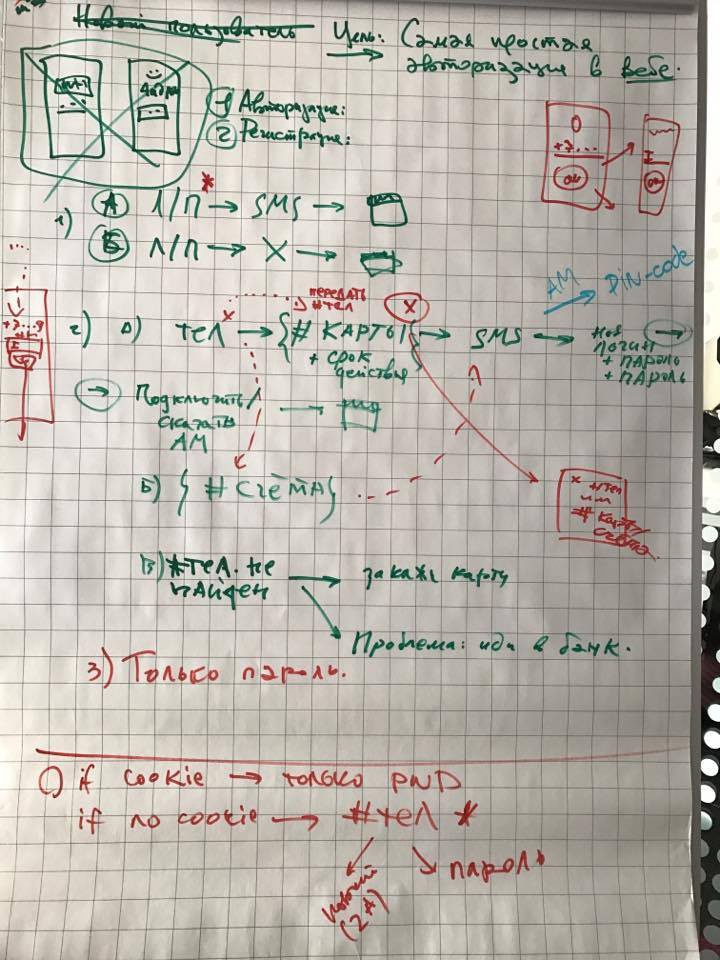 Новый пользователь
Цель: Самая простая
авторизация в вебе.
1 Авторизация:
2 Регистрация:
+7...
ок
ок
1)
А Л/П* → SMS →
Б Л/П → X →
АМ PIN-code
передать
#тел
x
2) А) тел x → {# КАРТЫ} → SMS → нов →
+ срок
действия
логин
+ пароль
+ пАроль
→ Подключить/
сказать
АМ
Б) {# счётА}
x #тел
или
# карты/
счёта.
В) #тел. не
найден
закажи карту
Проблема: иди в банк.
3) Только пароль.
1) if cookie → только PWD
if no cookie → #тел *
новый
(2А)
пароль